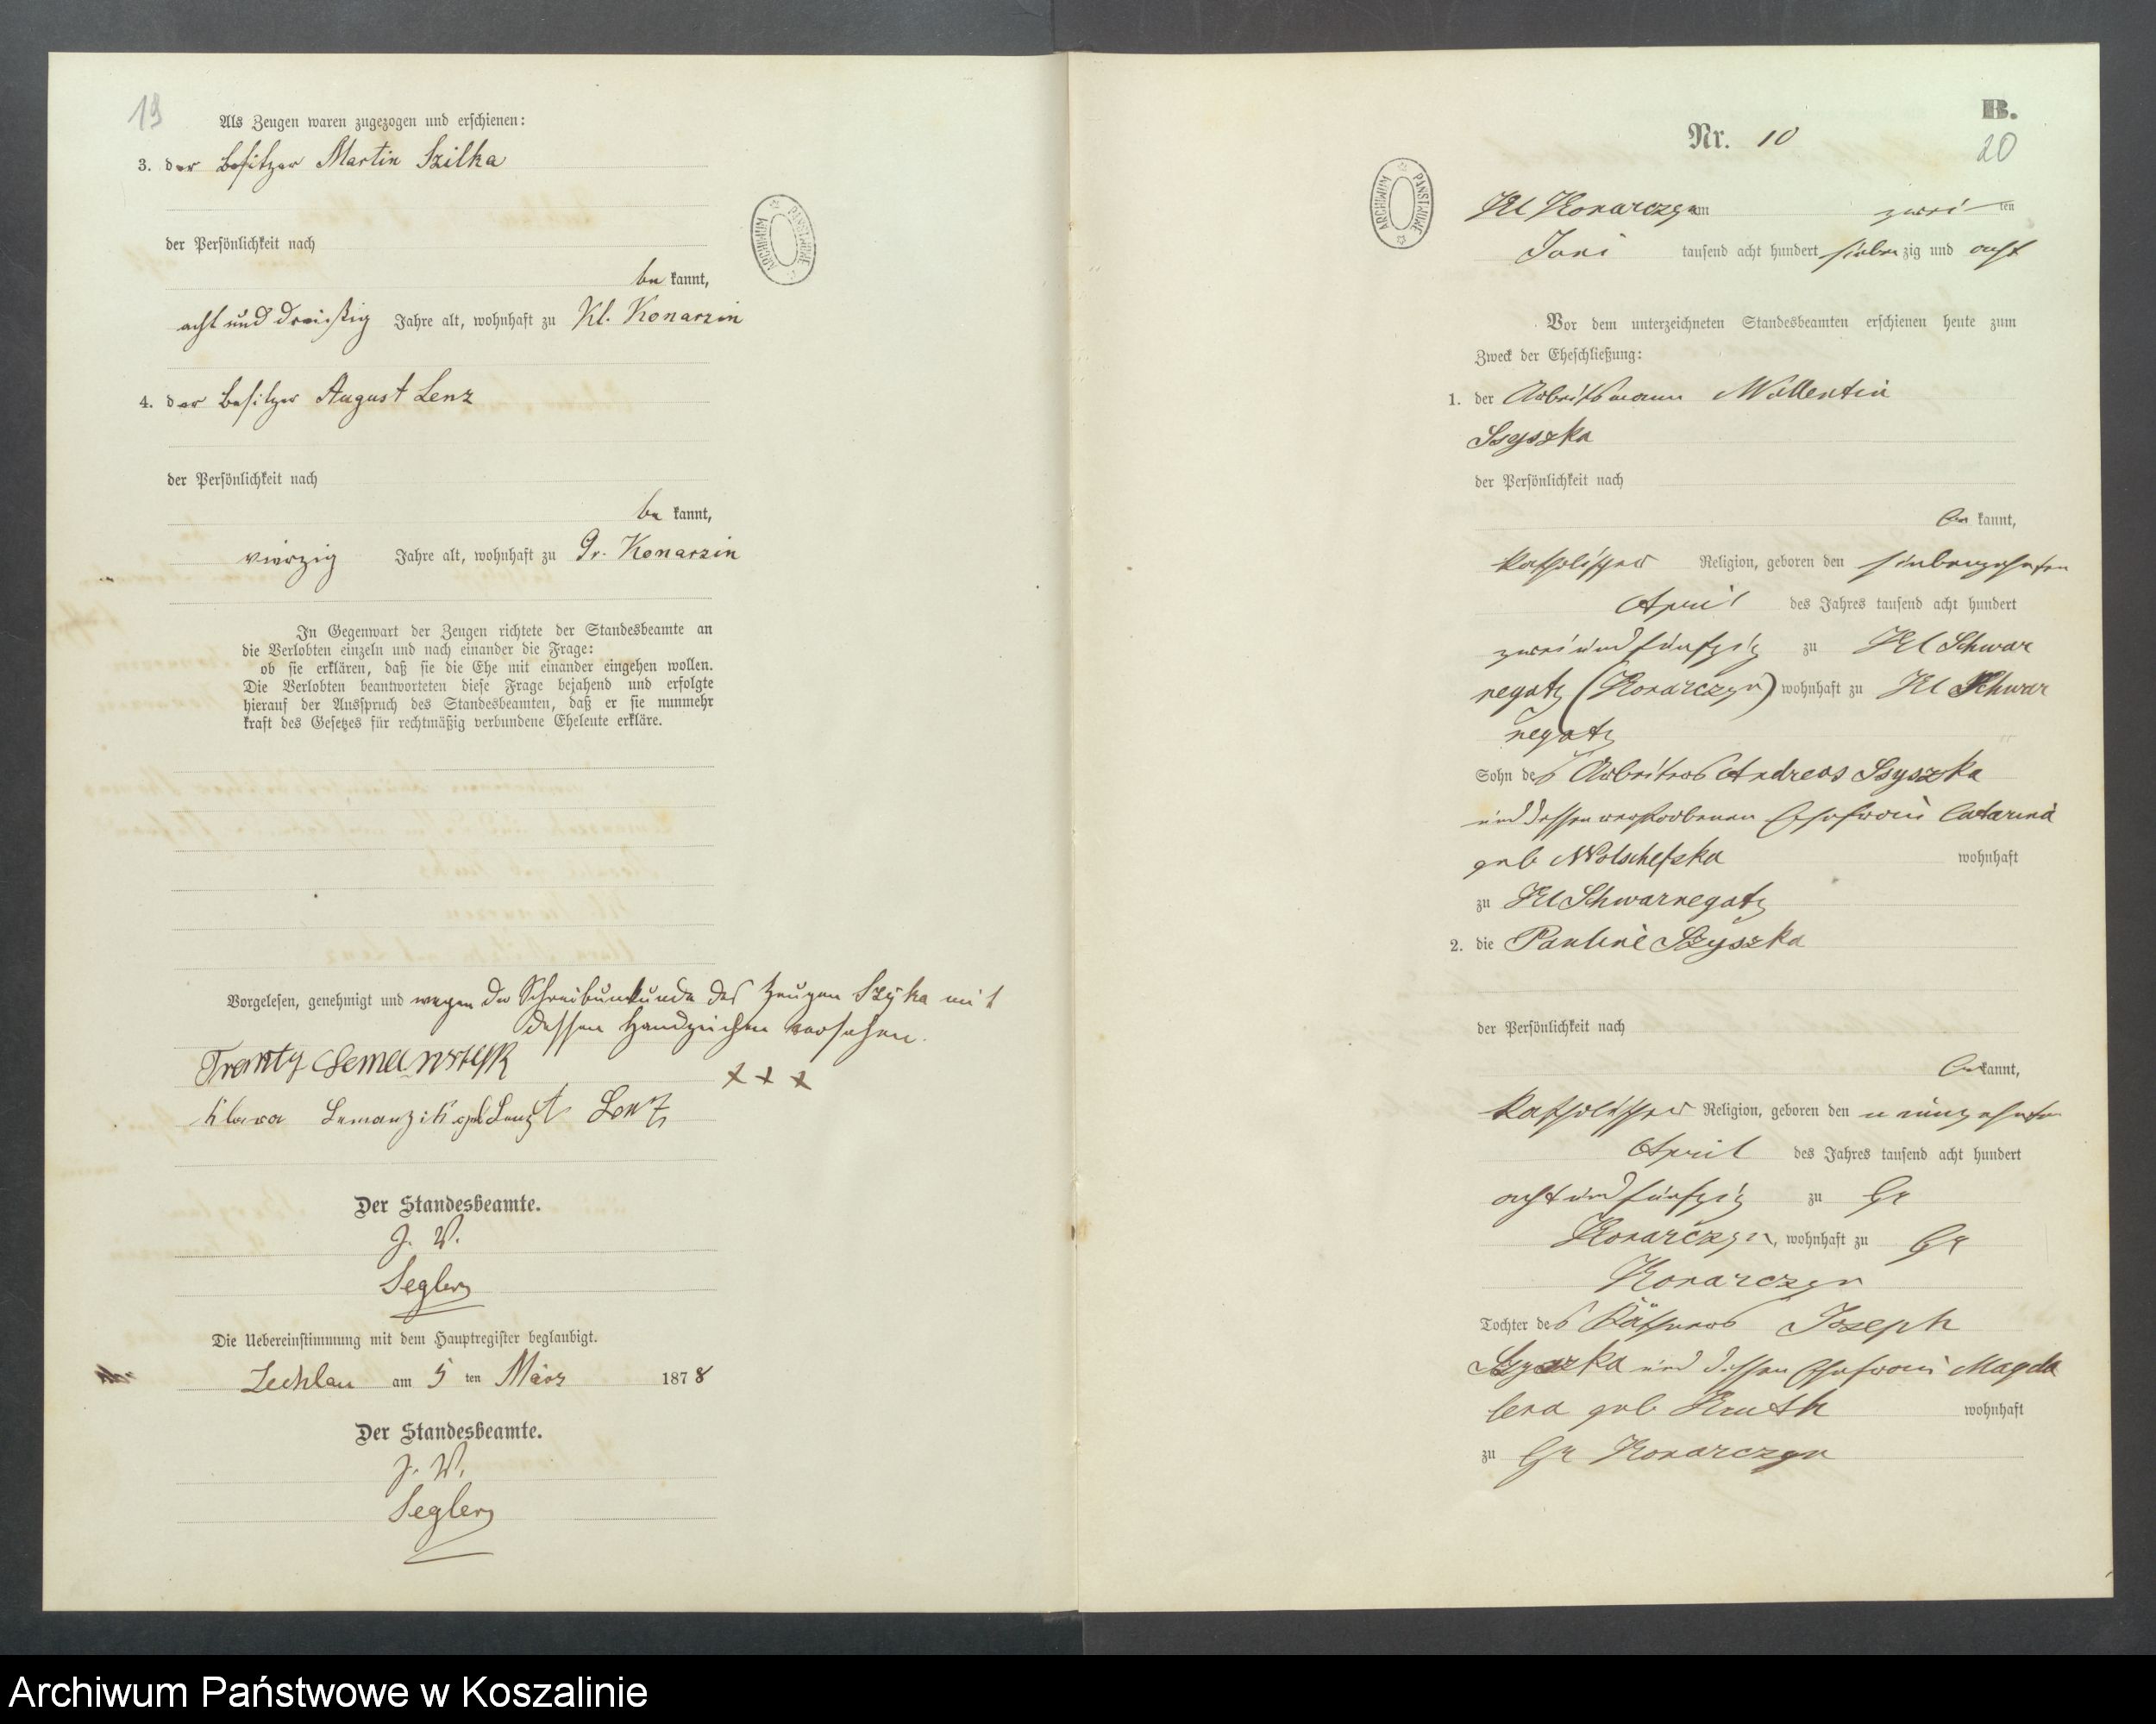 19
Als Zeugen waren zugezogen und erschienen:
3. der Besitzer Martin Szilka
der Persönlichkeit nach
be kannt,
acht und dreißig Jahre alt, wohnhaft zu Kl. Konarzin
4. der Besitzer August Lenz
der Persönlichkeit nach
be kannt,
vierzig Jahre alt, wohnhaft zu Gr. Konarzin
In Gegenwart der Zeugen richtete der Standesbeamte an
die Verlobten einzeln und nach einander die Frage:
ob sie erklären, daß sie die Ehe mit einander eingehen wollen.
Die Verlobten beantworteten diese Frage bejahend und erfolgte
hierauf der Ausspruch des Standesbeamten, daß er sie nunmehr
kraft des Gesetzes für rechtmäßig verbundene Eheleute erkläre.
Vorgelesen, genehmigt und wegen der Schreibunkunde des Zeugen mit
dessen Handzeichen versehen.
+ + +
Klara geb Lenz Lenz
Der Standesbeamte.
J. V.
Segler
Die Uebereinstimmung mit dem Hauptregister beglaubigt.
Zechlau am 5 ten März 1878
Der Standesbeamte.
J. V.
Segler
ARCHIWUM PAŃSTWOWE
B.
Nr. 10
20
ARCHIWUM PAŃSTWOWE
Kl Konarczyn am zwei ten
Juni tausend acht hundert sieben zig und acht
Vor dem unterzeichneten Standesbeamten erschienen heute zum
Zweck der Eheschließung:
1. der Arbeitsmann Wallentin
Szyszka
der Persönlichkeit nach
be kannt,
katholischer Religion, geboren den siebenzehnten
April des Jahres tausend acht hundert
zwei und fünfzig zu Kl Schwar
negatz (Konarczyn) wohnhaft zu Kl Schwar
negatz
Sohn des Arbeiters Andreas Szyszka
und dessen verstorbenen Ehefrau Catarina
geb wohnhaft
zu Kl Schwarnegatz
2. die Pauline Szyszka
der Persönlichkeit nach
be kannt,
katholischer Religion, geboren den neunzehnten
April des Jahres tausend acht hundert
acht und fünfzig zu Gr
Konarczyn, wohnhaft zu Gr
Konarczyn
Tochter des Käthners Joseph
Szyszka und dessen Ehefrau Magda
lena geb Knuth wohnhaft
zu Gr Konarczyn
Archiwum Państwowe w Koszalinie